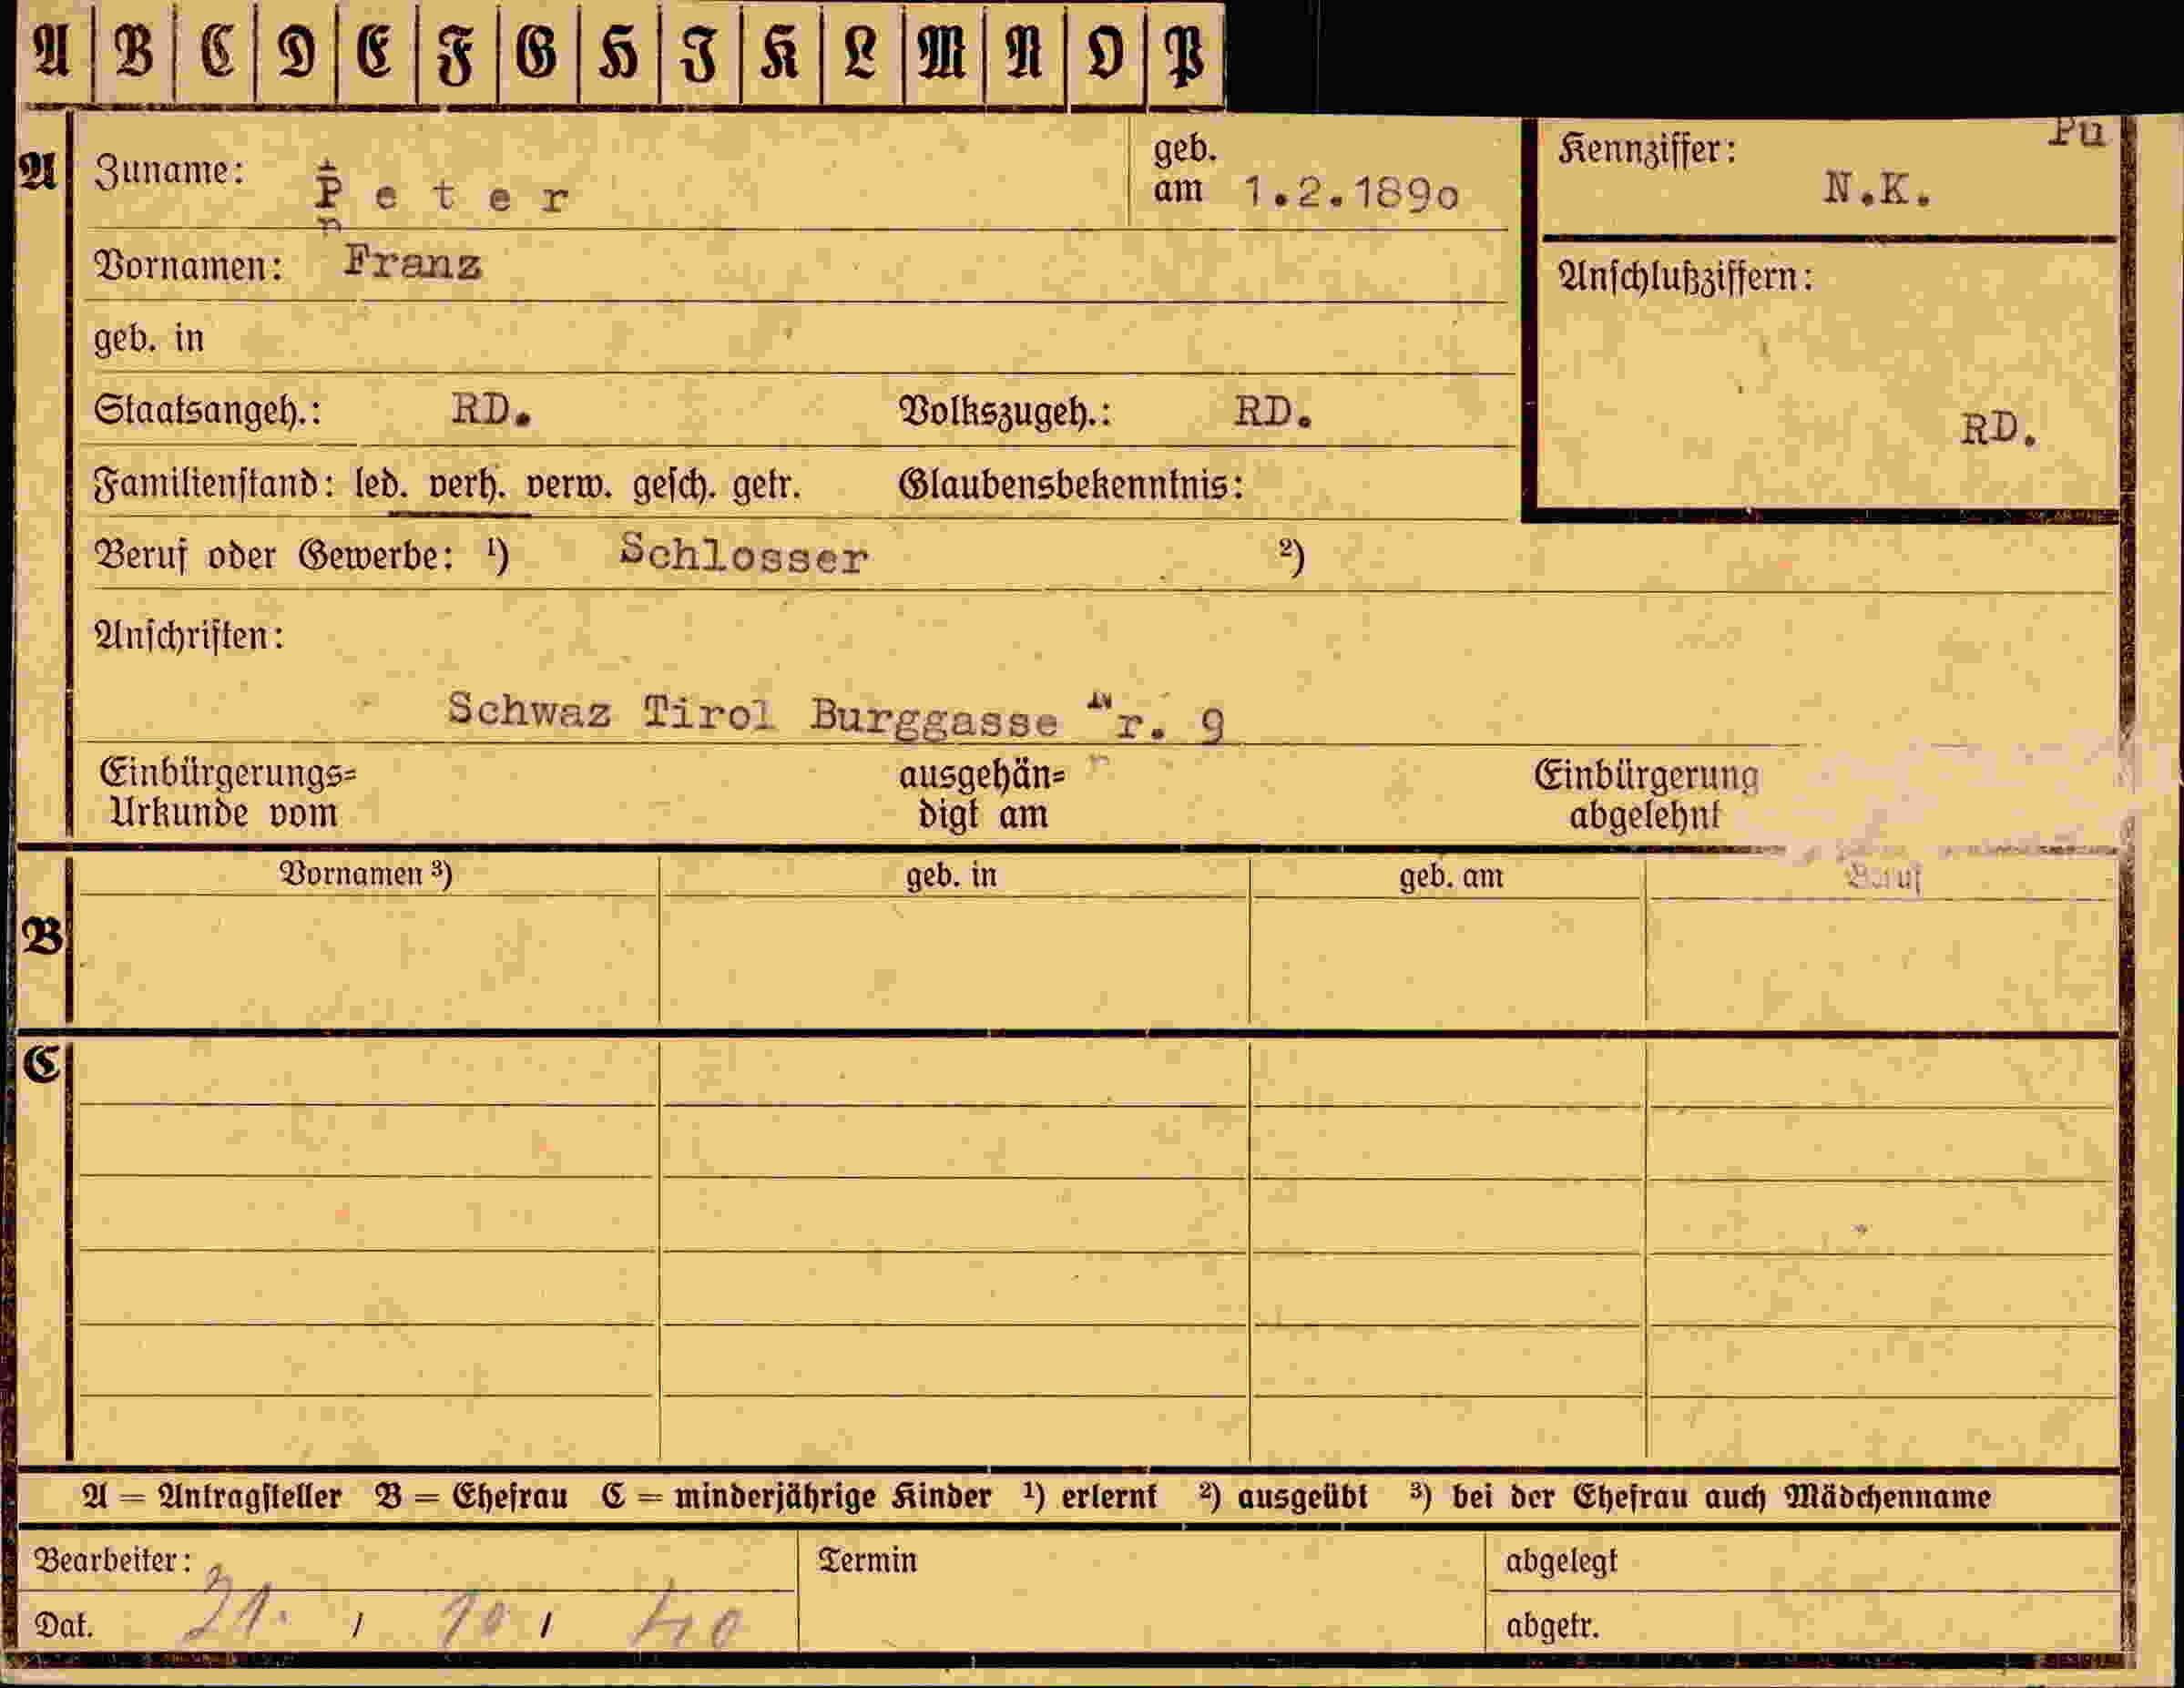 A B C D E F G H I K L M N O P
A Zuname: Peter geb. am 1.2.1890
Kennziffer: Pu
N.K.
Vornamen: Franz
Anschlußziffern:
geb. in
Staatsangeh.: RD. Volkszugeh.: RD.
RD.
Familienstand: led. verh. verw. gesch. getr. Glaubensbekenntnis:
Beruf oder Gewerbe: ¹) Schlosser ²)
Anschriften:
Schwaz Tirol Burggasse Nr. 9
Einbürgerungs= ausgehän= Einbürgerung
Urkunde vom digt am abgelehnt
Vornamen ³) geb. in geb. am Beruf
B
C
A = Antragsteller B = Ehefrau C = minderjährige Kinder ¹) erlernt ²) ausgeübt ³) bei der Ehefrau auch Mädchenname
Bearbeiter: Termin abgelegt
Dat. 21. / 10 / 40 abgetr.